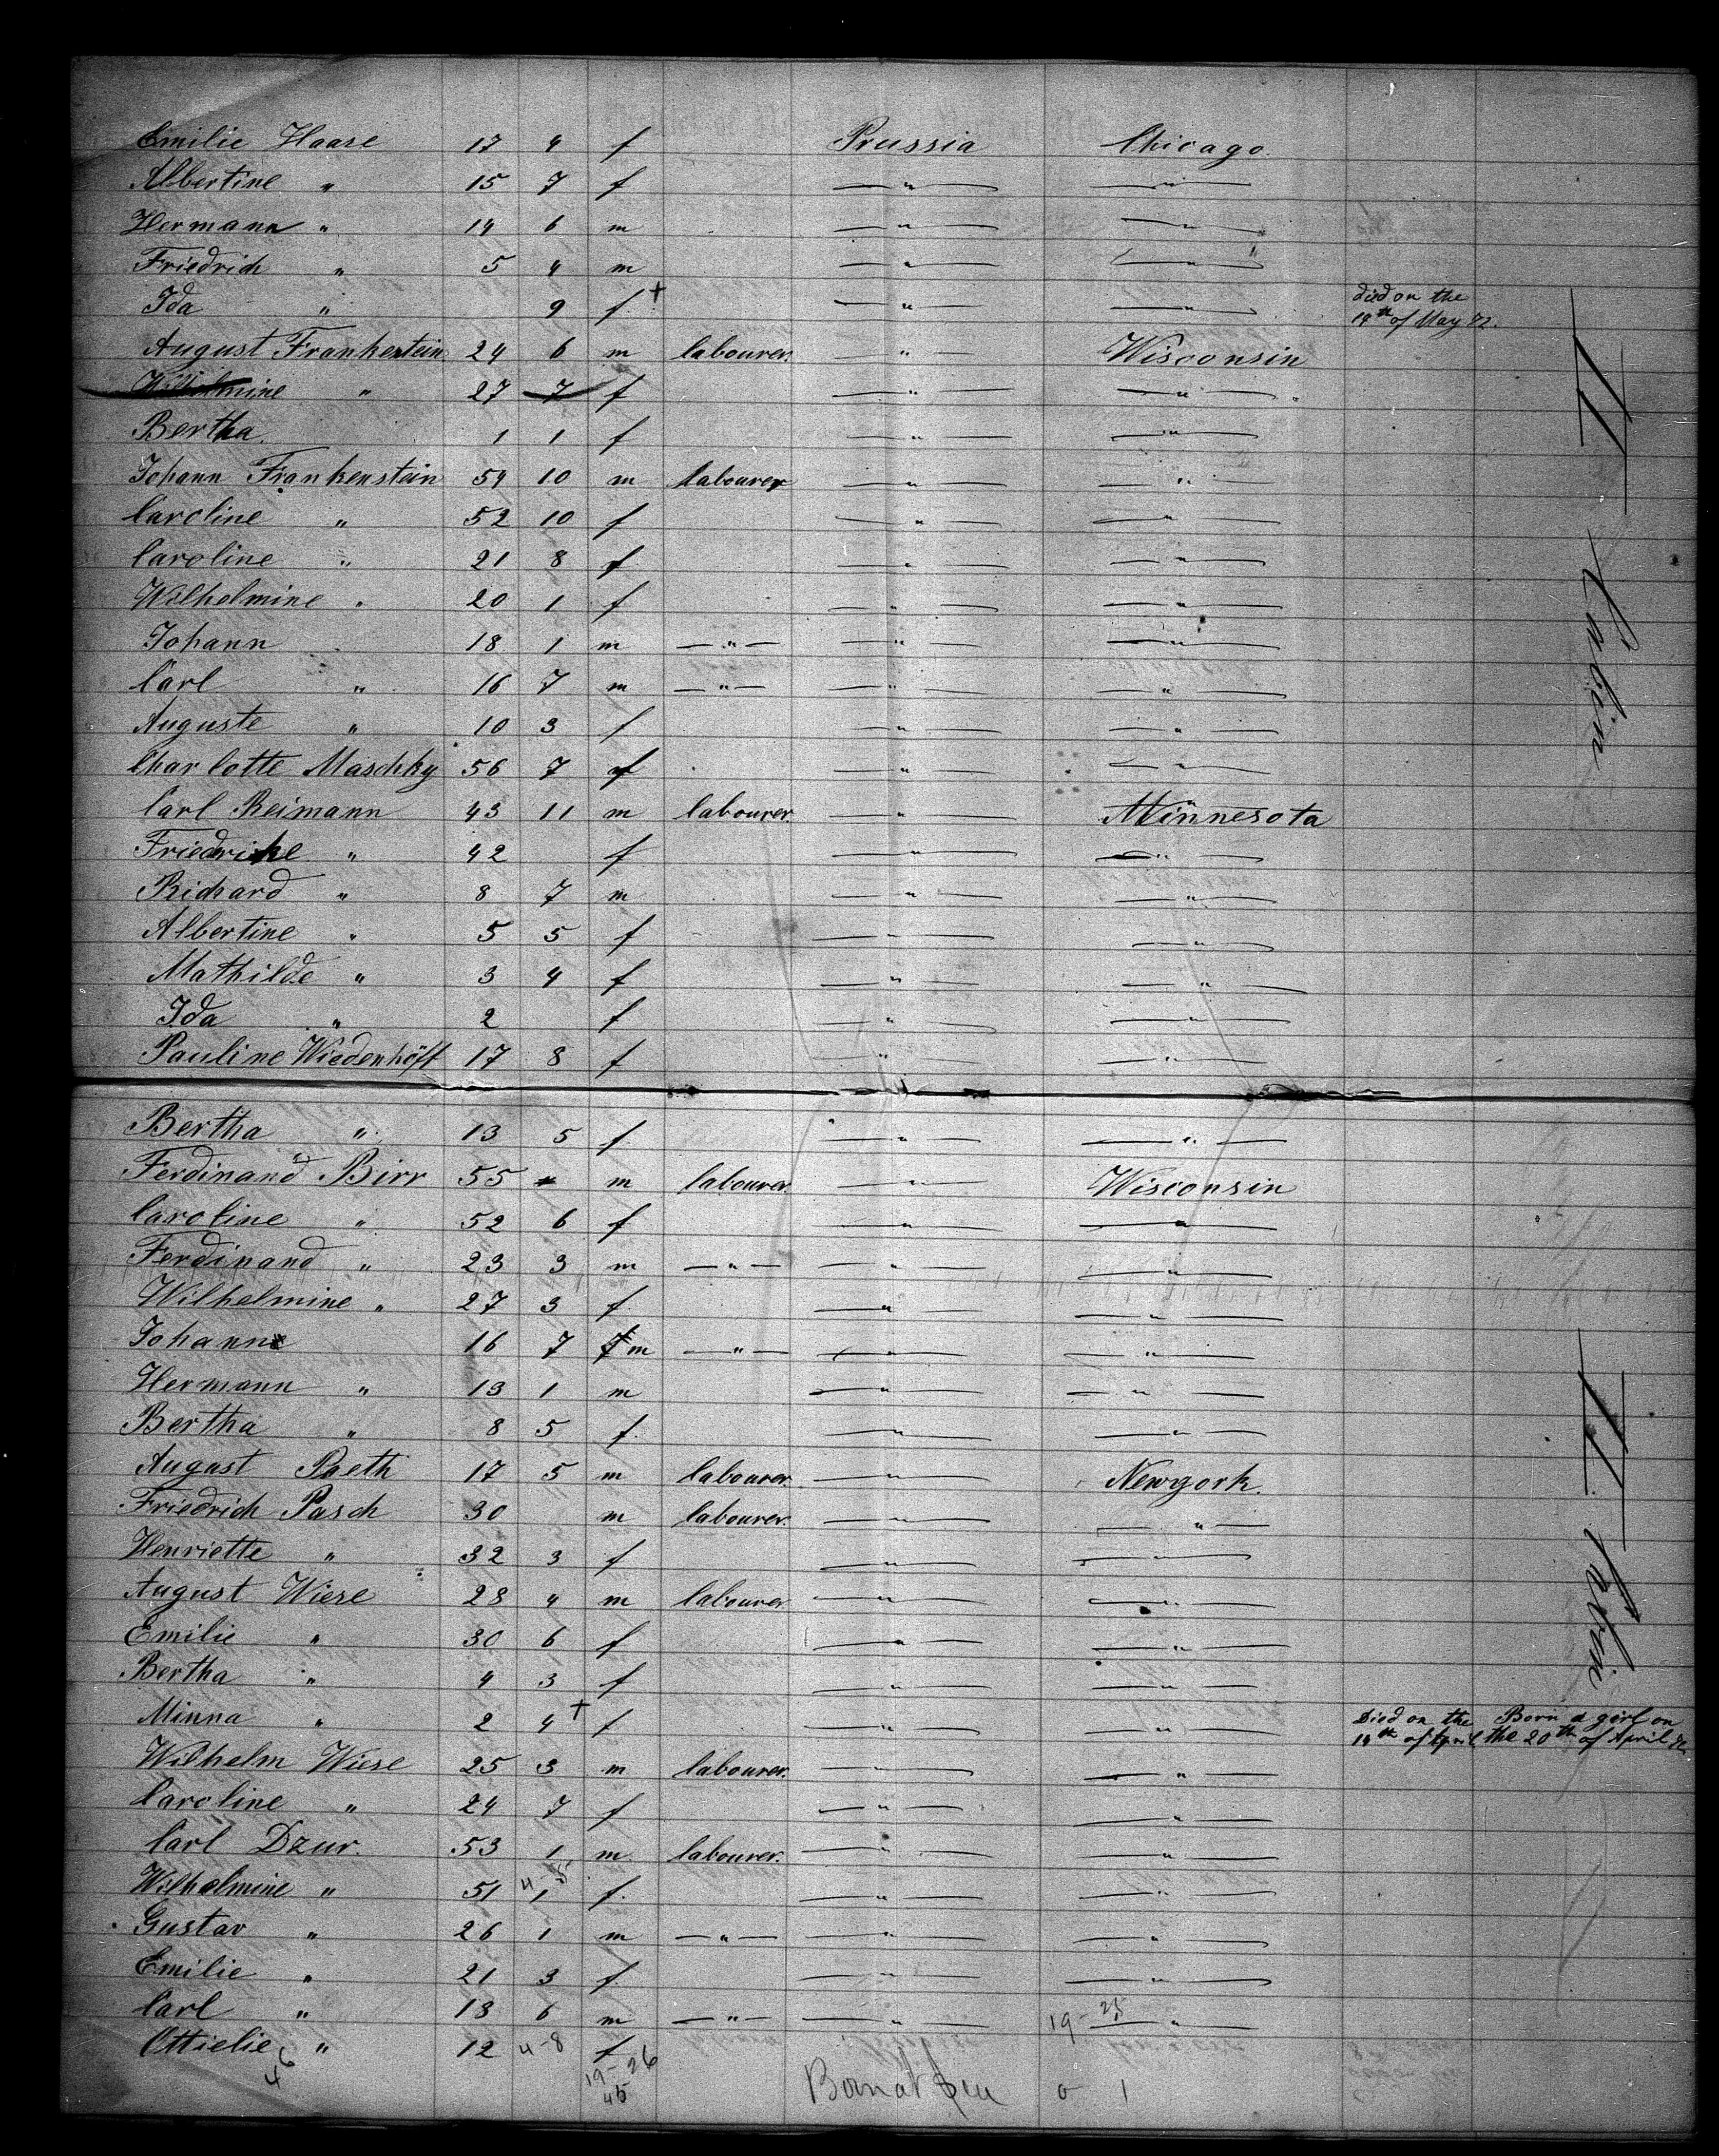 Emilie Haase 17 4 f Prussia Chicago.
Albertine " 15 7 f — " — — " —
Hermann " 14 6 m — " — — " —
Friedrich " 5 4 m — " — — " —
Ida " 9 f + — " — — " — died on the
19th of May 72.
August Frankenstein 24 6 m labourer. — " — Wisconsin
Wilhelmine " 27 7 f — " — — " —
Bertha. 1 1 f — " — — " —
Johann Frankenstein 54 10 m labourer — " — — " —
Caroline " 52 10 f — " — — " —
Caroline " 21 8 f — " — — " —
Wilhelmine " 20 1 f — " — — " —
Johann 18 1 m — " — — " — — " —
Carl " 16 7 m — " — — " — — " —
Auguste " 10 3 f — " — — " —
Charlotte Maschky 56 7 f — " — — " —
Carl Reimann 43 11 m labourer. — " — Minnesota
Friedrike " 42 f — " — — " —
Richard " 8 7 m — " — — " —
Albertine " 5 5 f — " — — " —
Mathilde " 3 4 f — " — — " —
Ida " 2 f — " — — " —
Pauline Wiedenhöft 17 8 f — " — — " —
II Cabin
Bertha " 13 5 f — " — — " —
Ferdinand Birr 55 m labourer. — " — Wisconsin
Caroline " 52 6 f — " — — " —
Ferdinand " 23 3 m — " — — " — — " —
Wilhelmine " 27 3 f — " — — " —
Johann 16 7 m — " — — " — — " —
Hermann " 13 1 m — " — — " —
Bertha " 8 5 f. — " — — " —
August Paeth 17 5 m labourer. — " — Newyork.
Friedrich Pasch 30 m labourer. — " — — " —
Henriette " 32 3 f — " — — " —
August Wiese 28 4 m labourer — " — — " —
Emilie " 30 6 f — " — — " —
Bertha " 4 3 f — " — — " —
Minna " 2 4 + f — " — — " — Died on the Born a girl on
14th of April the 20th of April 72.
Wilhelm Wiese 25 3 m labourer. — " — — " —
Caroline " 24 7 f — " — — " —
Carl Dzur. 53 1 m labourer. — " — — " —
Wilhelmine " 51 1 f. — " — — " —
4-5
Gustav " 26 1 m — " — — " — — " —
Emilie " 21 3 f. — " — — " —
Carl " 13 6 m — " — — " — — " —
19-25
Ottielie " 12 f
4-8
46 19-26
45 Born at Sea 0 1
II Cabin